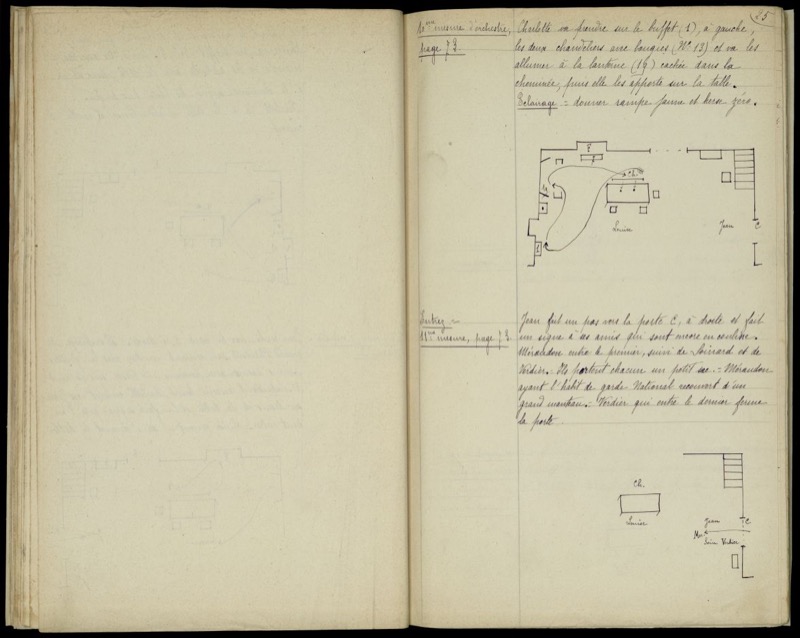 25
10ème mesure d'orchestre,
page 73.
Charlotte va prendre sur le buffet (1), à gauche,
les deux chandeliers avec bougies (No 13) et va les
allumer à la lanterne (19) cachée dans la
cheminée, puis elle les apporte sur la table.
Eclairage = donner rampe jaune et herse zéro.
Ch.
Louise
Jean
C
Entrez
11me mesure, page 73.
Jean fait un pas vers la porte C, à droite et fait
un signe à ses amis qui sont encore en coulisse.
Mérandon entre le premier, suivi de Loirrard et de
Verdier. Ils portent chacun un petit sac. Mérandon
ayant l'habit de garde National recouvert d'un
grand manteau. Verdier qui entre le dernier ferme
la porte
Ch.
Louise
Jean
C
Verdier